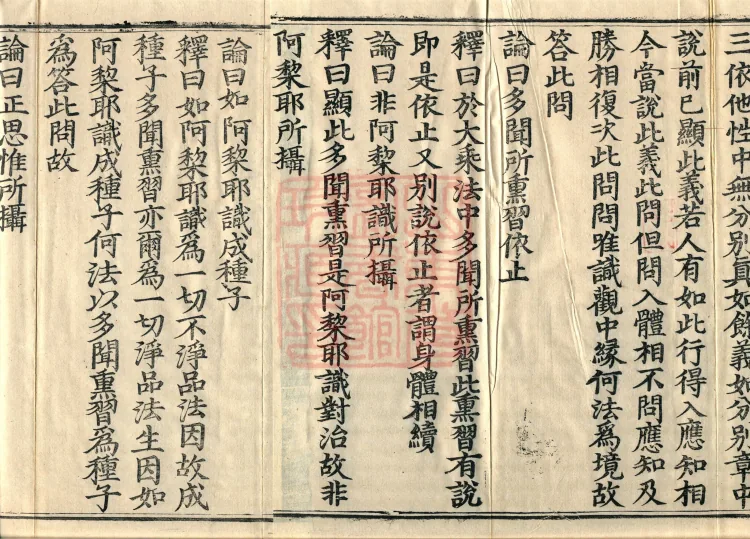 三依他性中無分別真如餘義如分別章中
說前已顯此義若人有如此行得入應知相
今當說此義此問但問入體相不問應知及
勝相復次此問問唯識觀中緣何法爲境故
答此問
論曰多聞所熏習依止
釋曰於大乘法中多聞所熏習此熏習有說
即是依止又別說依止者謂身體相續
論曰非阿黎耶識所攝
釋曰顯此多聞熏習是阿黎耶識對治故非
阿黎耶所攝
論曰如阿黎耶識成種子
釋曰如阿黎耶識爲一切不淨品法因故成
種子多聞熏習亦爾爲一切淨品法生因如
阿黎耶識成種子何法以多聞熏習爲種子
爲答此問故
論曰正思惟所攝